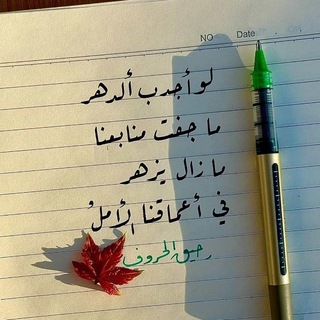 NO Date
لو أجدب ألدهر
ما جفت منابعنا
ما زال يزهر
في أعماقنا الأملُ
رحيق الحروف